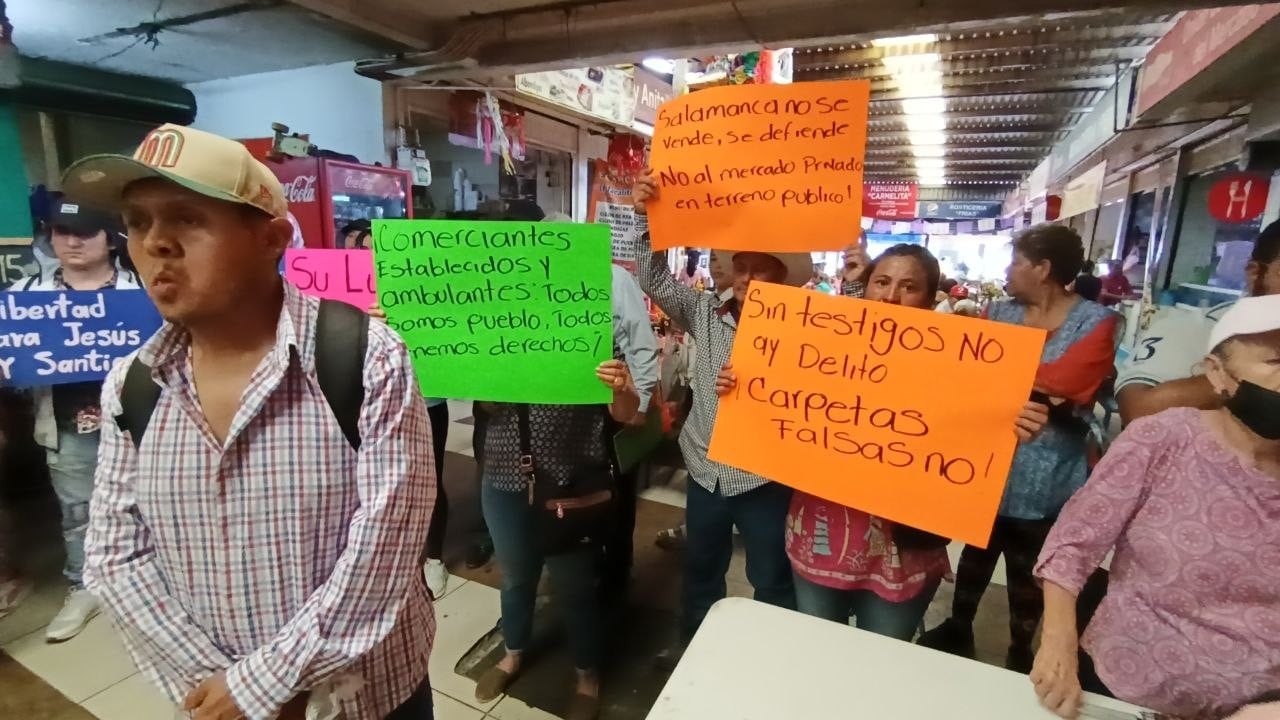 Salamanca no se
vende, se defiende
NO al mercado Privado
en terreno publico!
¡Comerciantes
Establecidos y
ambulantes: Todos
somos pueblo, Todos
nemos derechos!
Sin testigos NO
ay Delito
¡Carpetas
Falsas no!
Su Lu
ibertad
ara Jesús
Y Santi
15
Coca-Cola
Coca-Cola
y Anita
MENUDERIA
"CARMELITA"
Coca-Cola
ROSTICERIA
3